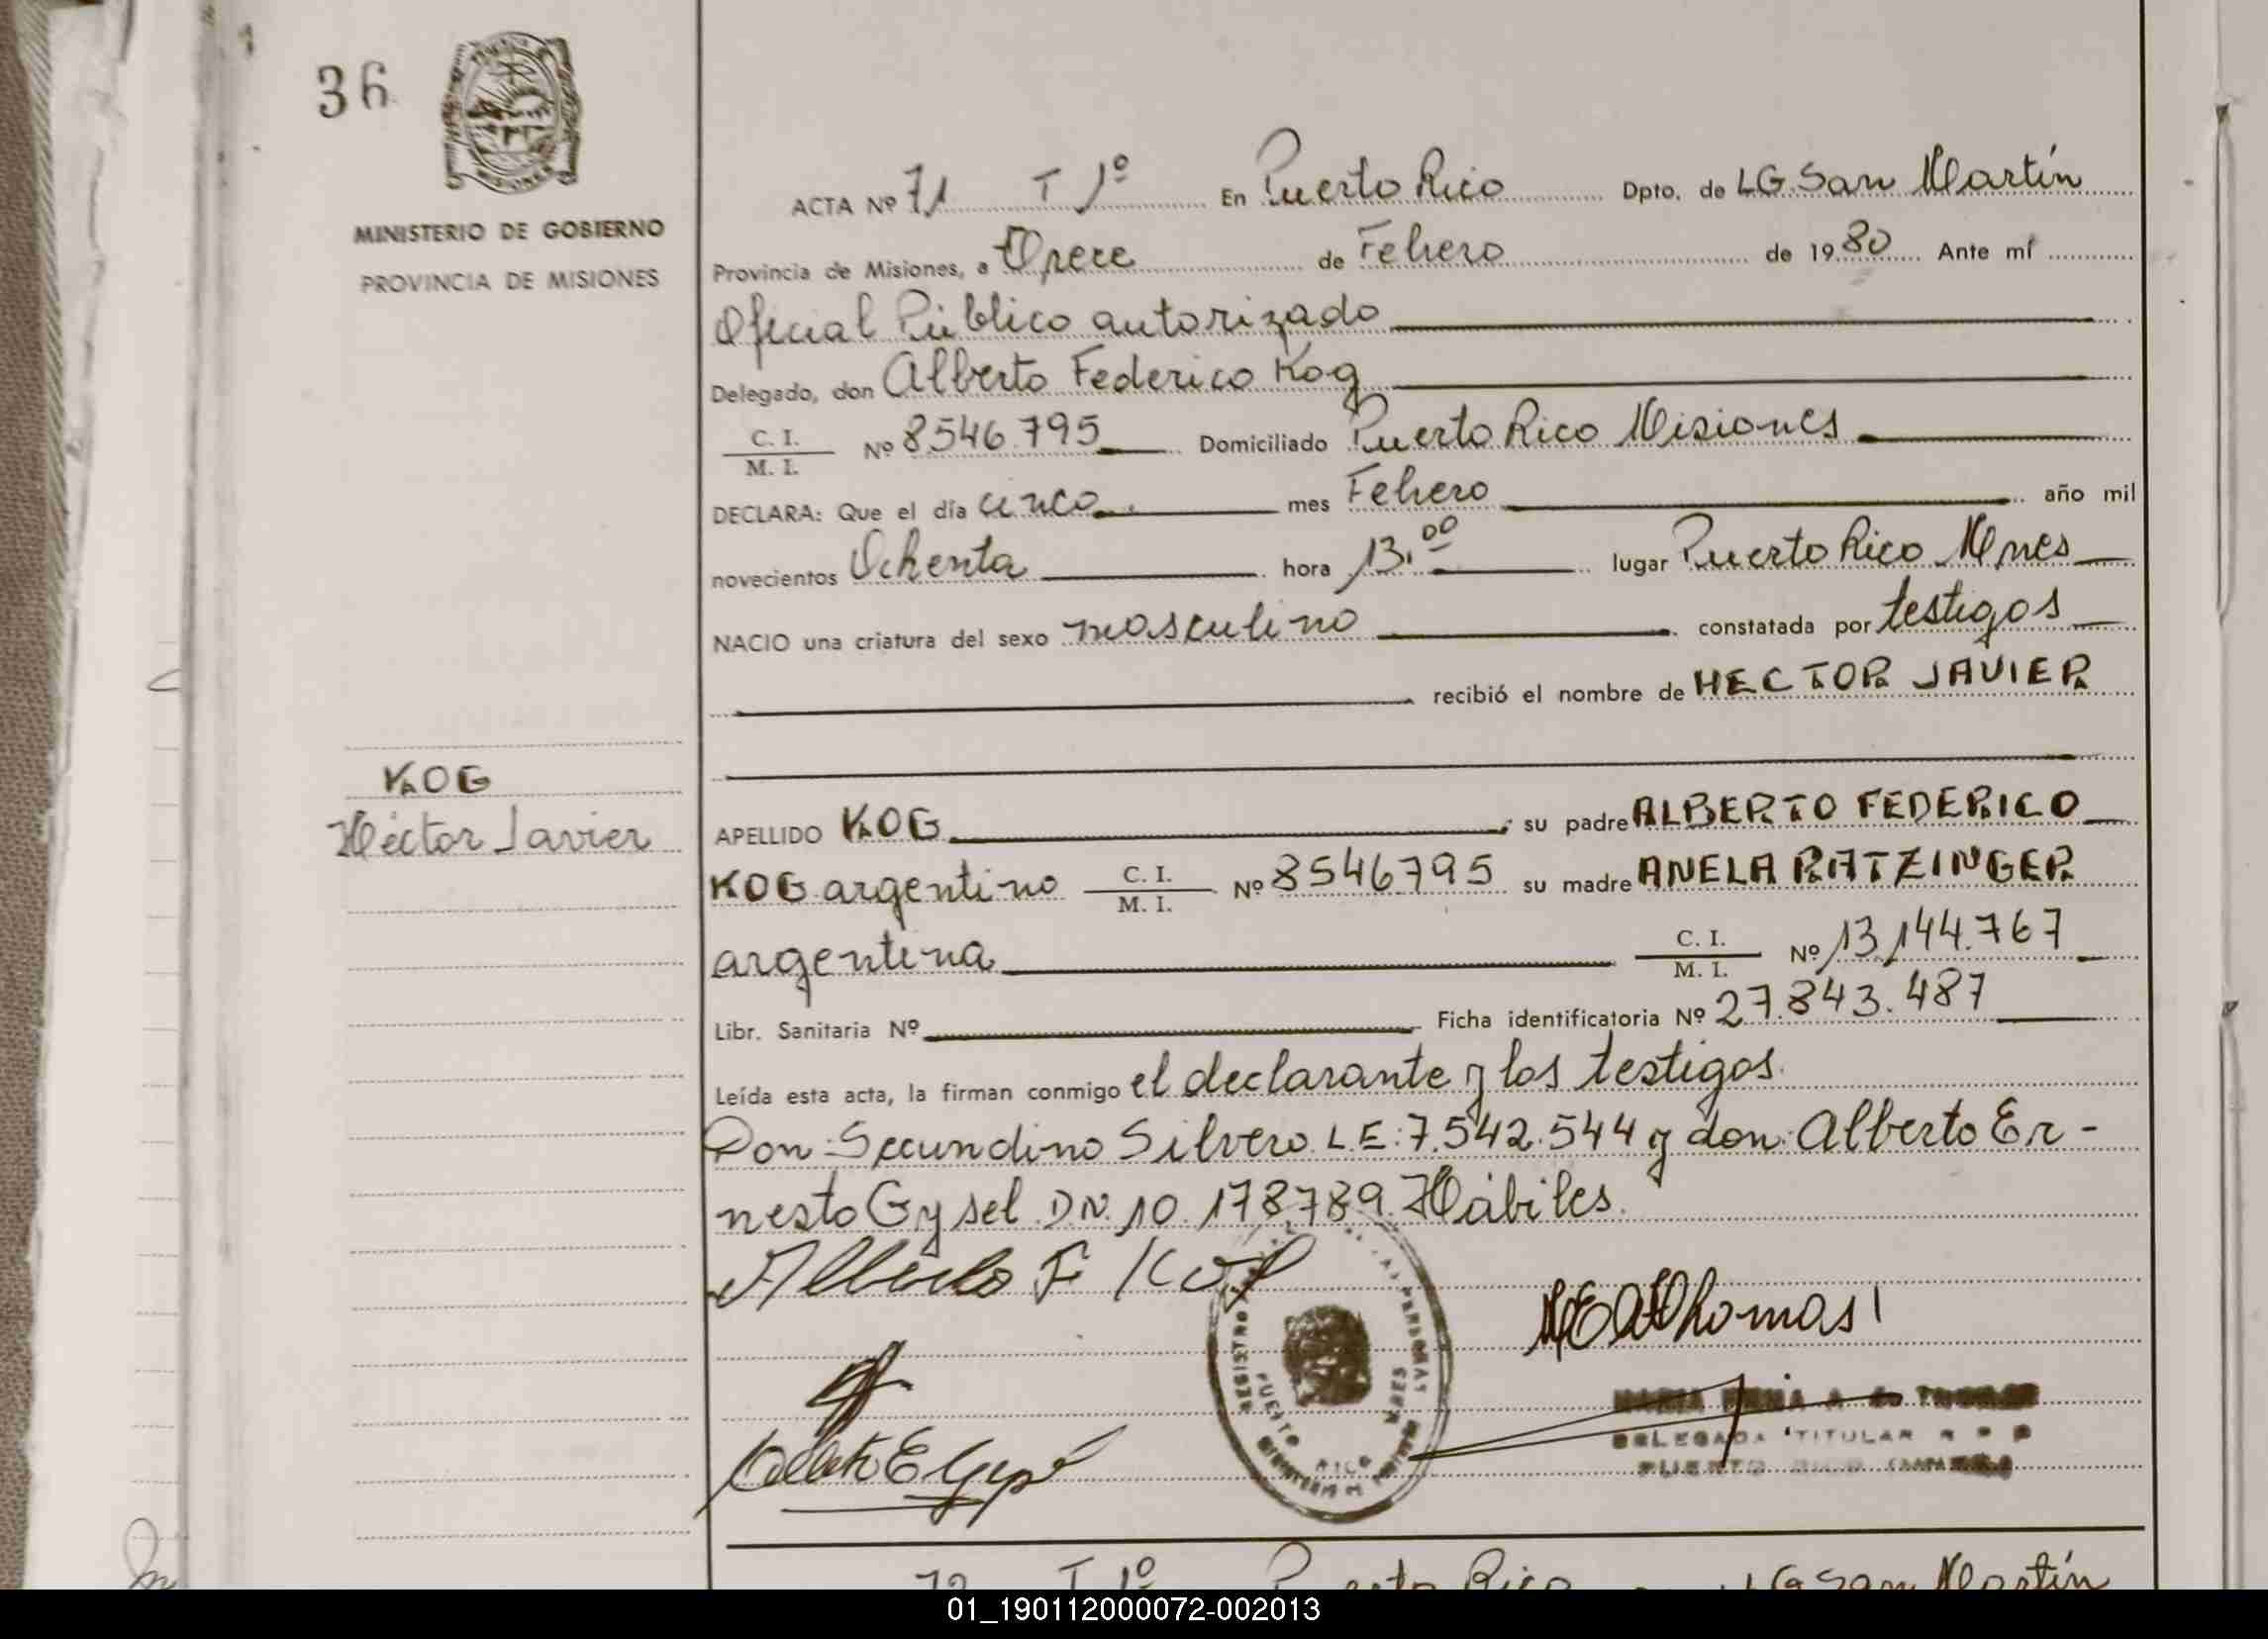 36
MINISTERIO DE GOBIERNO
PROVINCIA DE MISIONES
ACTA Nº 71 T 1º En Puerto Rico Dpto. de LG. San Martín
Provincia de Misiones, a Trece de Febrero de 1980 Ante mí
Oficial Público autorizado
Delegado, don Alberto Federico Kog
C. I. / M. I. Nº 8546.795 Domiciliado Puerto Rico Misiones
DECLARA: Que el día cinco mes Febrero año mil
novecientos Ochenta hora 13.00 lugar Puerto Rico Mnes
NACIO una criatura del sexo masculino constatada por testigos
recibió el nombre de HECTOR JAVIER
KOG
Héctor Javier
APELLIDO KOG ; su padre ALBERTO FEDERICO
KOG argentino C. I. / M. I. Nº 8546795 su madre ANELA RATZINGER
argentina C. I. / M. I. Nº 13,144.767
Libr. Sanitaria Nº Ficha identificatoria Nº 27.843.487
Leída esta acta, la firman conmigo el declarante y los testigos.
Don: Secundino Silvero L.E: 7.542.544 y don: Alberto Er-
nesto Gysel D.N. 10.178,789. Hábiles.
Alberto F Kog
REGISTRO PERSONAS
PUERTO RICO MNES
DELEGADA TITULAR
PUERTO RICO
72 T 1º Puerto Rico LG San Martín
01_190112000072-002013